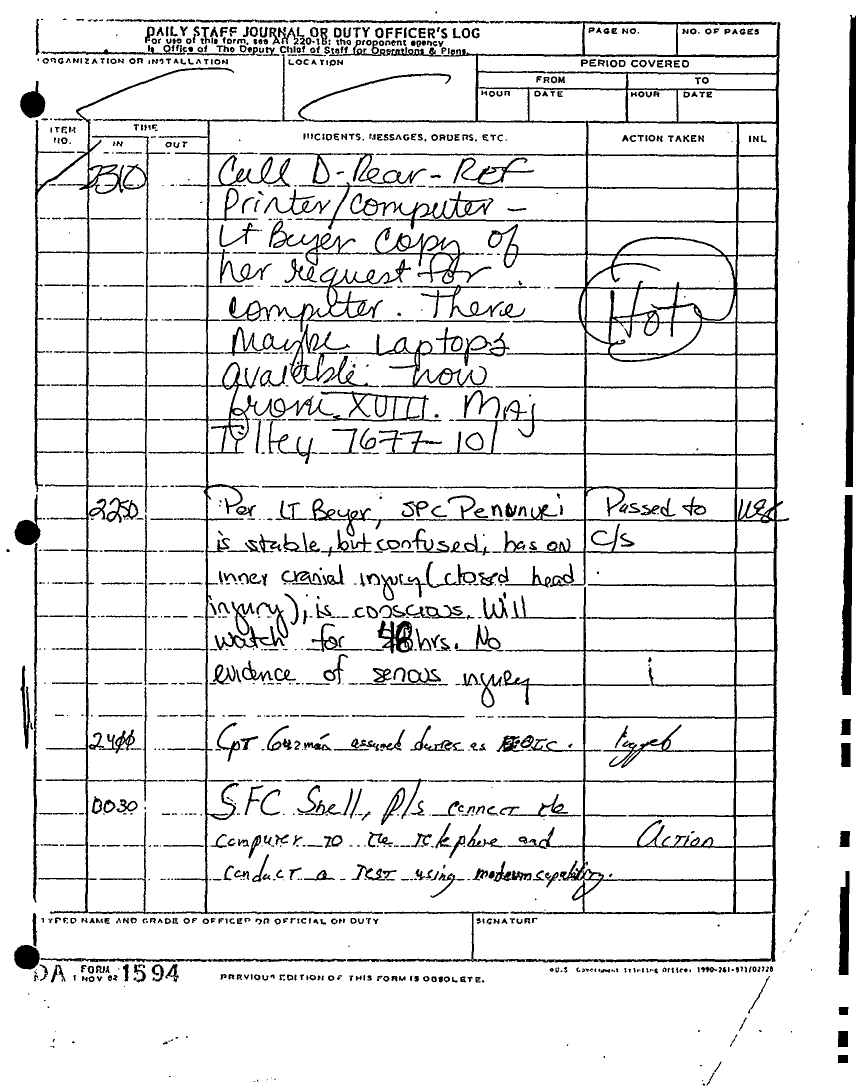 DAILY STAFF JOURNAL OR DUTY OFFICER'S LOG
For use of this form, see AR 220-15: the proponent agency
is Office of The Deputy Chief of Staff for Operations & Plans.
PAGE NO.
NO. OF PAGES
ORGANIZATION OR INSTALLATION
LOCATION
PERIOD COVERED
FROM
TO
HOUR
DATE
HOUR
DATE
ITEM NO.
TIME
IN
OUT
INCIDENTS, MESSAGES, ORDERS, ETC.
ACTION TAKEN
INL
2310
Call D-Rear-REF
printer/computer-
Lt Beyer copy of
her request for
computer. There
maybe Laptops
avaiable now
from XVIII. Maj
Tilley 7677-101
Hot
2250
Per LT Beyer, SPC Penunuri
is stable, but confused; has an
inner cranial injury (closed head
injury), is conscious. Will
watch for 48 hrs. No
evidence of serious injury
Passed to
C/S
2400
Cpt Guzmán assumed duties as OIC.
0030
SFC Snell, p/s connect the
computer to the telephone and
conduct a test using modem capability.
Action
TYPED NAME AND GRADE OF OFFICER OR OFFICIAL ON DUTY
SIGNATURE
DA FORM 1 NOV 62 1594
PREVIOUS EDITION OF THIS FORM IS OBSOLETE.
U.S. Government Printing Office: 1990-261-871/02728